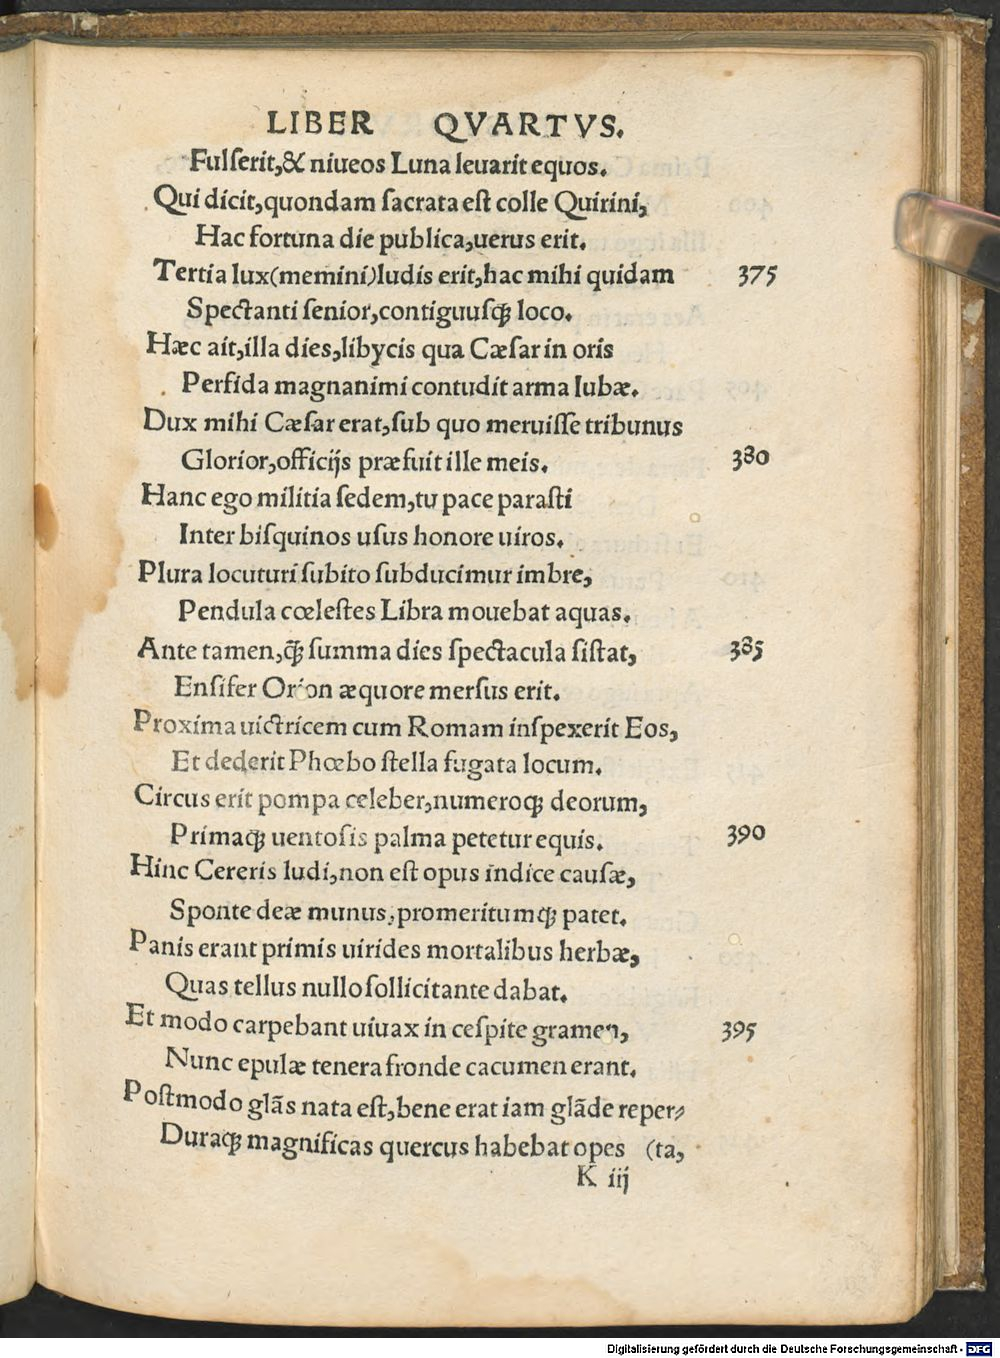 LIBER QVARTVS.
Fulſerit,& niueos Luna leuarit equos.
Qui dicit,quondam ſacrata eſt colle Quirini,
Hac fortuna die publica,uerus erit.
Tertia lux(memini)ludis erit,hac mihi quidam 375
Spectanti ſenior,contiguuſqꝫ loco.
Hæc ait,illa dies,libycis qua Cæſar in oris
Perfida magnanimi contudit arma Iubæ.
Dux mihi Cæſar erat,ſub quo meruiſſe tribunus
Glorior,officijs præfuit ille meis. 380
Hanc ego militia ſedem,tu pace paraſti
Inter biſquinos uſus honore uiros.
Plura locuturi ſubito ſubducimur imbre,
Pendula cœleſtes Libra mouebat aquas.
Ante tamen,qꝫ̃ ſumma dies ſpectacula ſiſtat, 385
Enſifer Orion æquore merſus erit.
Proxima uictricem cum Romam inſpexerit Eos,
Et dederit Phœbo ſtella fugata locum.
Circus erit pompa celeber,numeroqꝫ deorum,
Primaqꝫ uentoſis palma petetur equis. 390
Hinc Cereris ludi,non eſt opus indice cauſæ,
Sponte deæ munus,promeritumqꝫ patet.
Panis erant primis uirides mortalibus herbæ,
Quas tellus nullo ſollicitante dabat.
Et modo carpebant uiuax in ceſpite gramen, 395
Nunc epulæ tenera fronde cacumen erant.
Poſtmodo glãs nata eſt,bene erat iam glãde reper⸗
Duraqꝫ magnificas quercus habebat opes (ta,
K iij
Digitalisierung gefördert durch die Deutsche Forschungsgemeinschaft - DFG